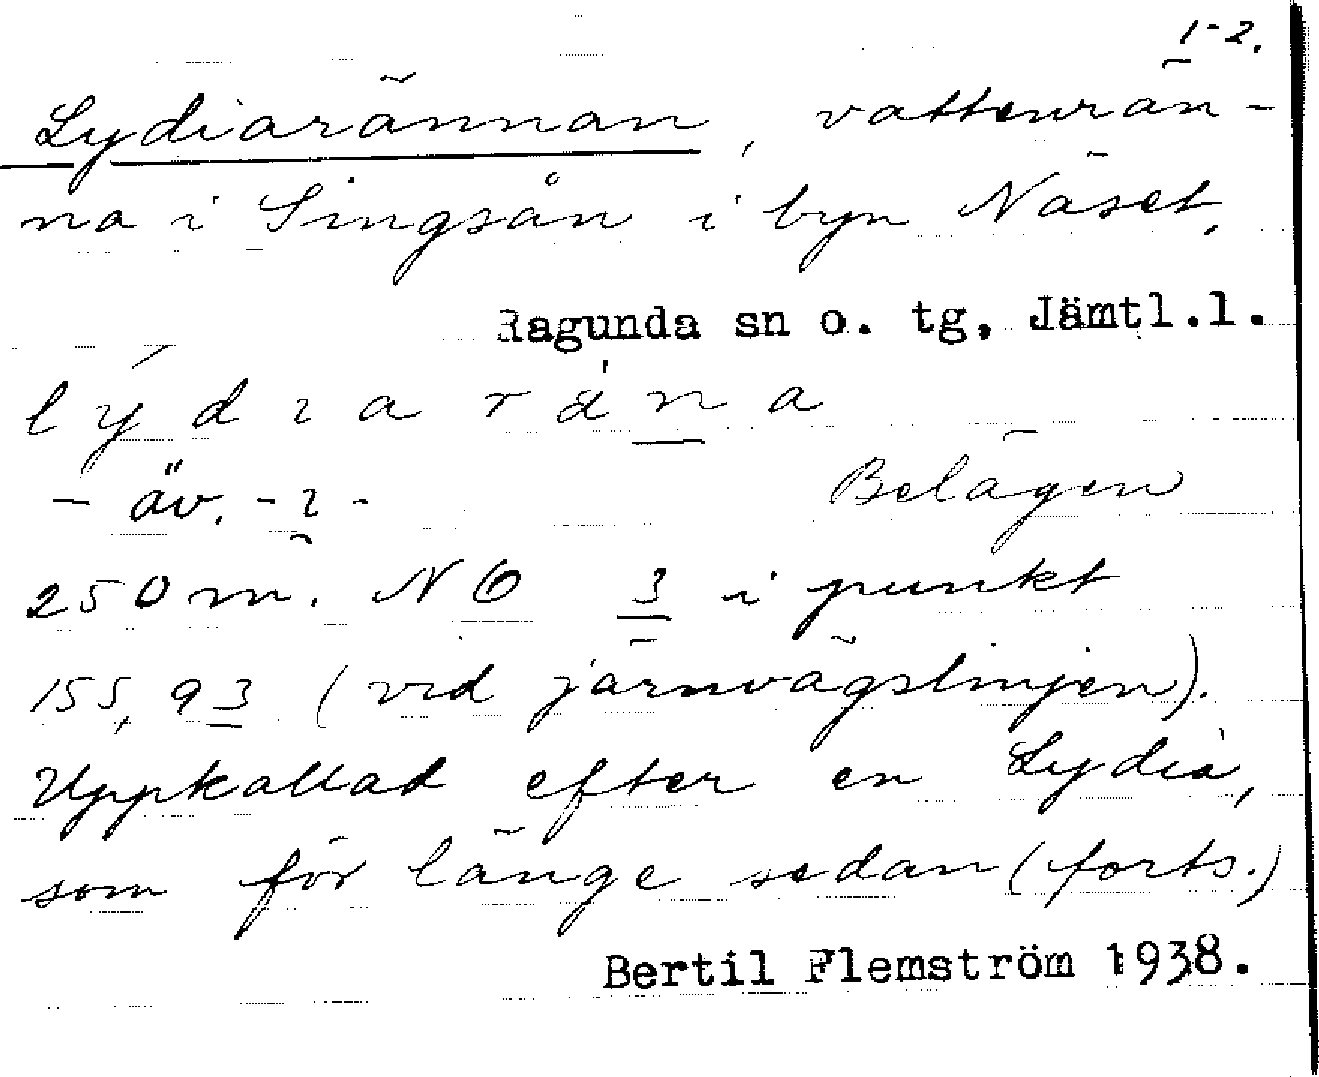 1-2.
Lydiarännan, vattenrän-
na i Singsån i byn Näset,
Ragunda sn o. tg, Jämtl.l.
lýdıaràna
- äv. -ı-
Belägen
250 m. NO 3 i punkt
155,93 (vid järnvägslinjen).
Uppkallad efter en Lydia,
som för länge sedan (forts.)
Bertil Flemström 1938.